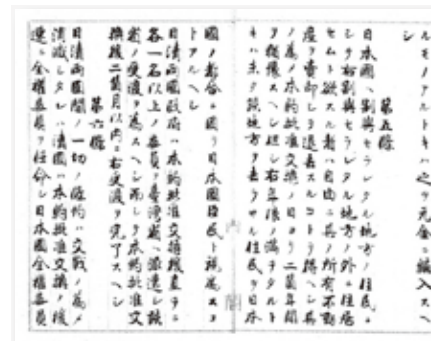 ルモノアルトキハ之ヲ元金ニ繰入スヘ
シ
第五條
日本國ヘ割與セラレタル地方ノ住民ニ
シテ右割與セラレタル地方ノ外ニ住居
セムト欲スル者ハ自由ニ其ノ所有不動
産ヲ賣却シテ退去スルコトヲ得ヘシ其
ノ為メ本約批准交換ノ日ヨリ二箇年間
ヲ猶豫スヘシ但シ右年限ノ満チタルト
キハ未タ該地方ヲ去ラサル住民ヲ日本
國ノ都合ニ因リ日本國臣民ト視為スコ
トアルヘシ
日清兩國政府ハ本約批准交換後直チニ
各一名以上ノ委員ヲ臺灣省ヘ派遣シ該
省ノ受渡ヲ為スヘシ而シテ本約批准交
換後二箇月以内ニ右受渡ヲ完了スヘシ
第六條
日清兩國間ノ一切ノ條約ハ交戰ノ為メ
消滅シタレハ清國ハ本約批准交換ノ後
速ニ全權委員ヲ任命シ日本國全權委員
内閣